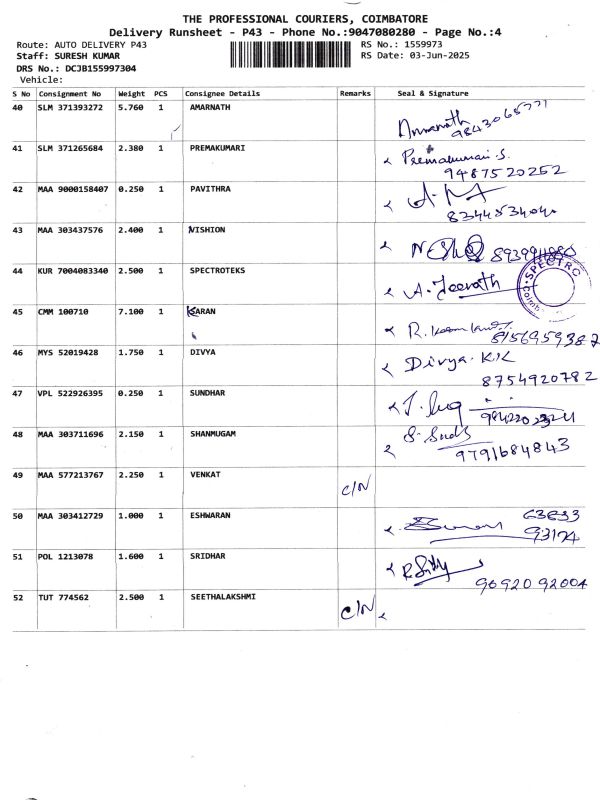 THE PROFESSIONAL COURIERS, COIMBATORE
Delivery Runsheet - P43 - Phone No.:9047080280 - Page No.:4
Route: AUTO DELIVERY P43 RS No.: 1559973
Staff: SURESH KUMAR RS Date: 03-Jun-2025
DRS No.: DCJB155997304
Vehicle:
S No Consignment No Weight PCS Consignee Details Remarks Seal & Signature
40 SLM 371393272 5.760 1 AMARNATH Amarnath
41 SLM 371265684 2.380 1 PREMAKUMARI Premakumari.S.
9487520252
42 MAA 9000158407 0.250 1 PAVITHRA
43 MAA 303437576 2.400 1 VISHION
44 KUR 7004083340 2.500 1 SPECTROTEKS A. SPECTRO
45 CMM 100710 7.100 1 KARAN R.
8156959382
46 MYS 52019428 1.750 1 DIVYA Divya.K.K
8754920782
47 VPL 522926395 0.250 1 SUNDHAR
48 MAA 303711696 2.150 1 SHANMUGAM
9791684843
49 MAA 577213767 2.250 1 VENKAT C/N
50 MAA 303412729 1.000 1 ESHWARAN
93174
51 POL 1213078 1.600 1 SRIDHAR
90920 92004
52 TUT 774562 2.500 1 SEETHALAKSHMI C/N